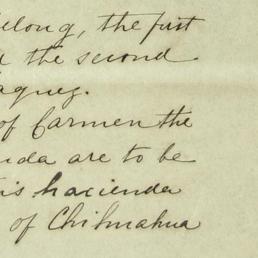 belong, the first
the second
of Carmen the
are to be
his hacienda
of Chihuahua